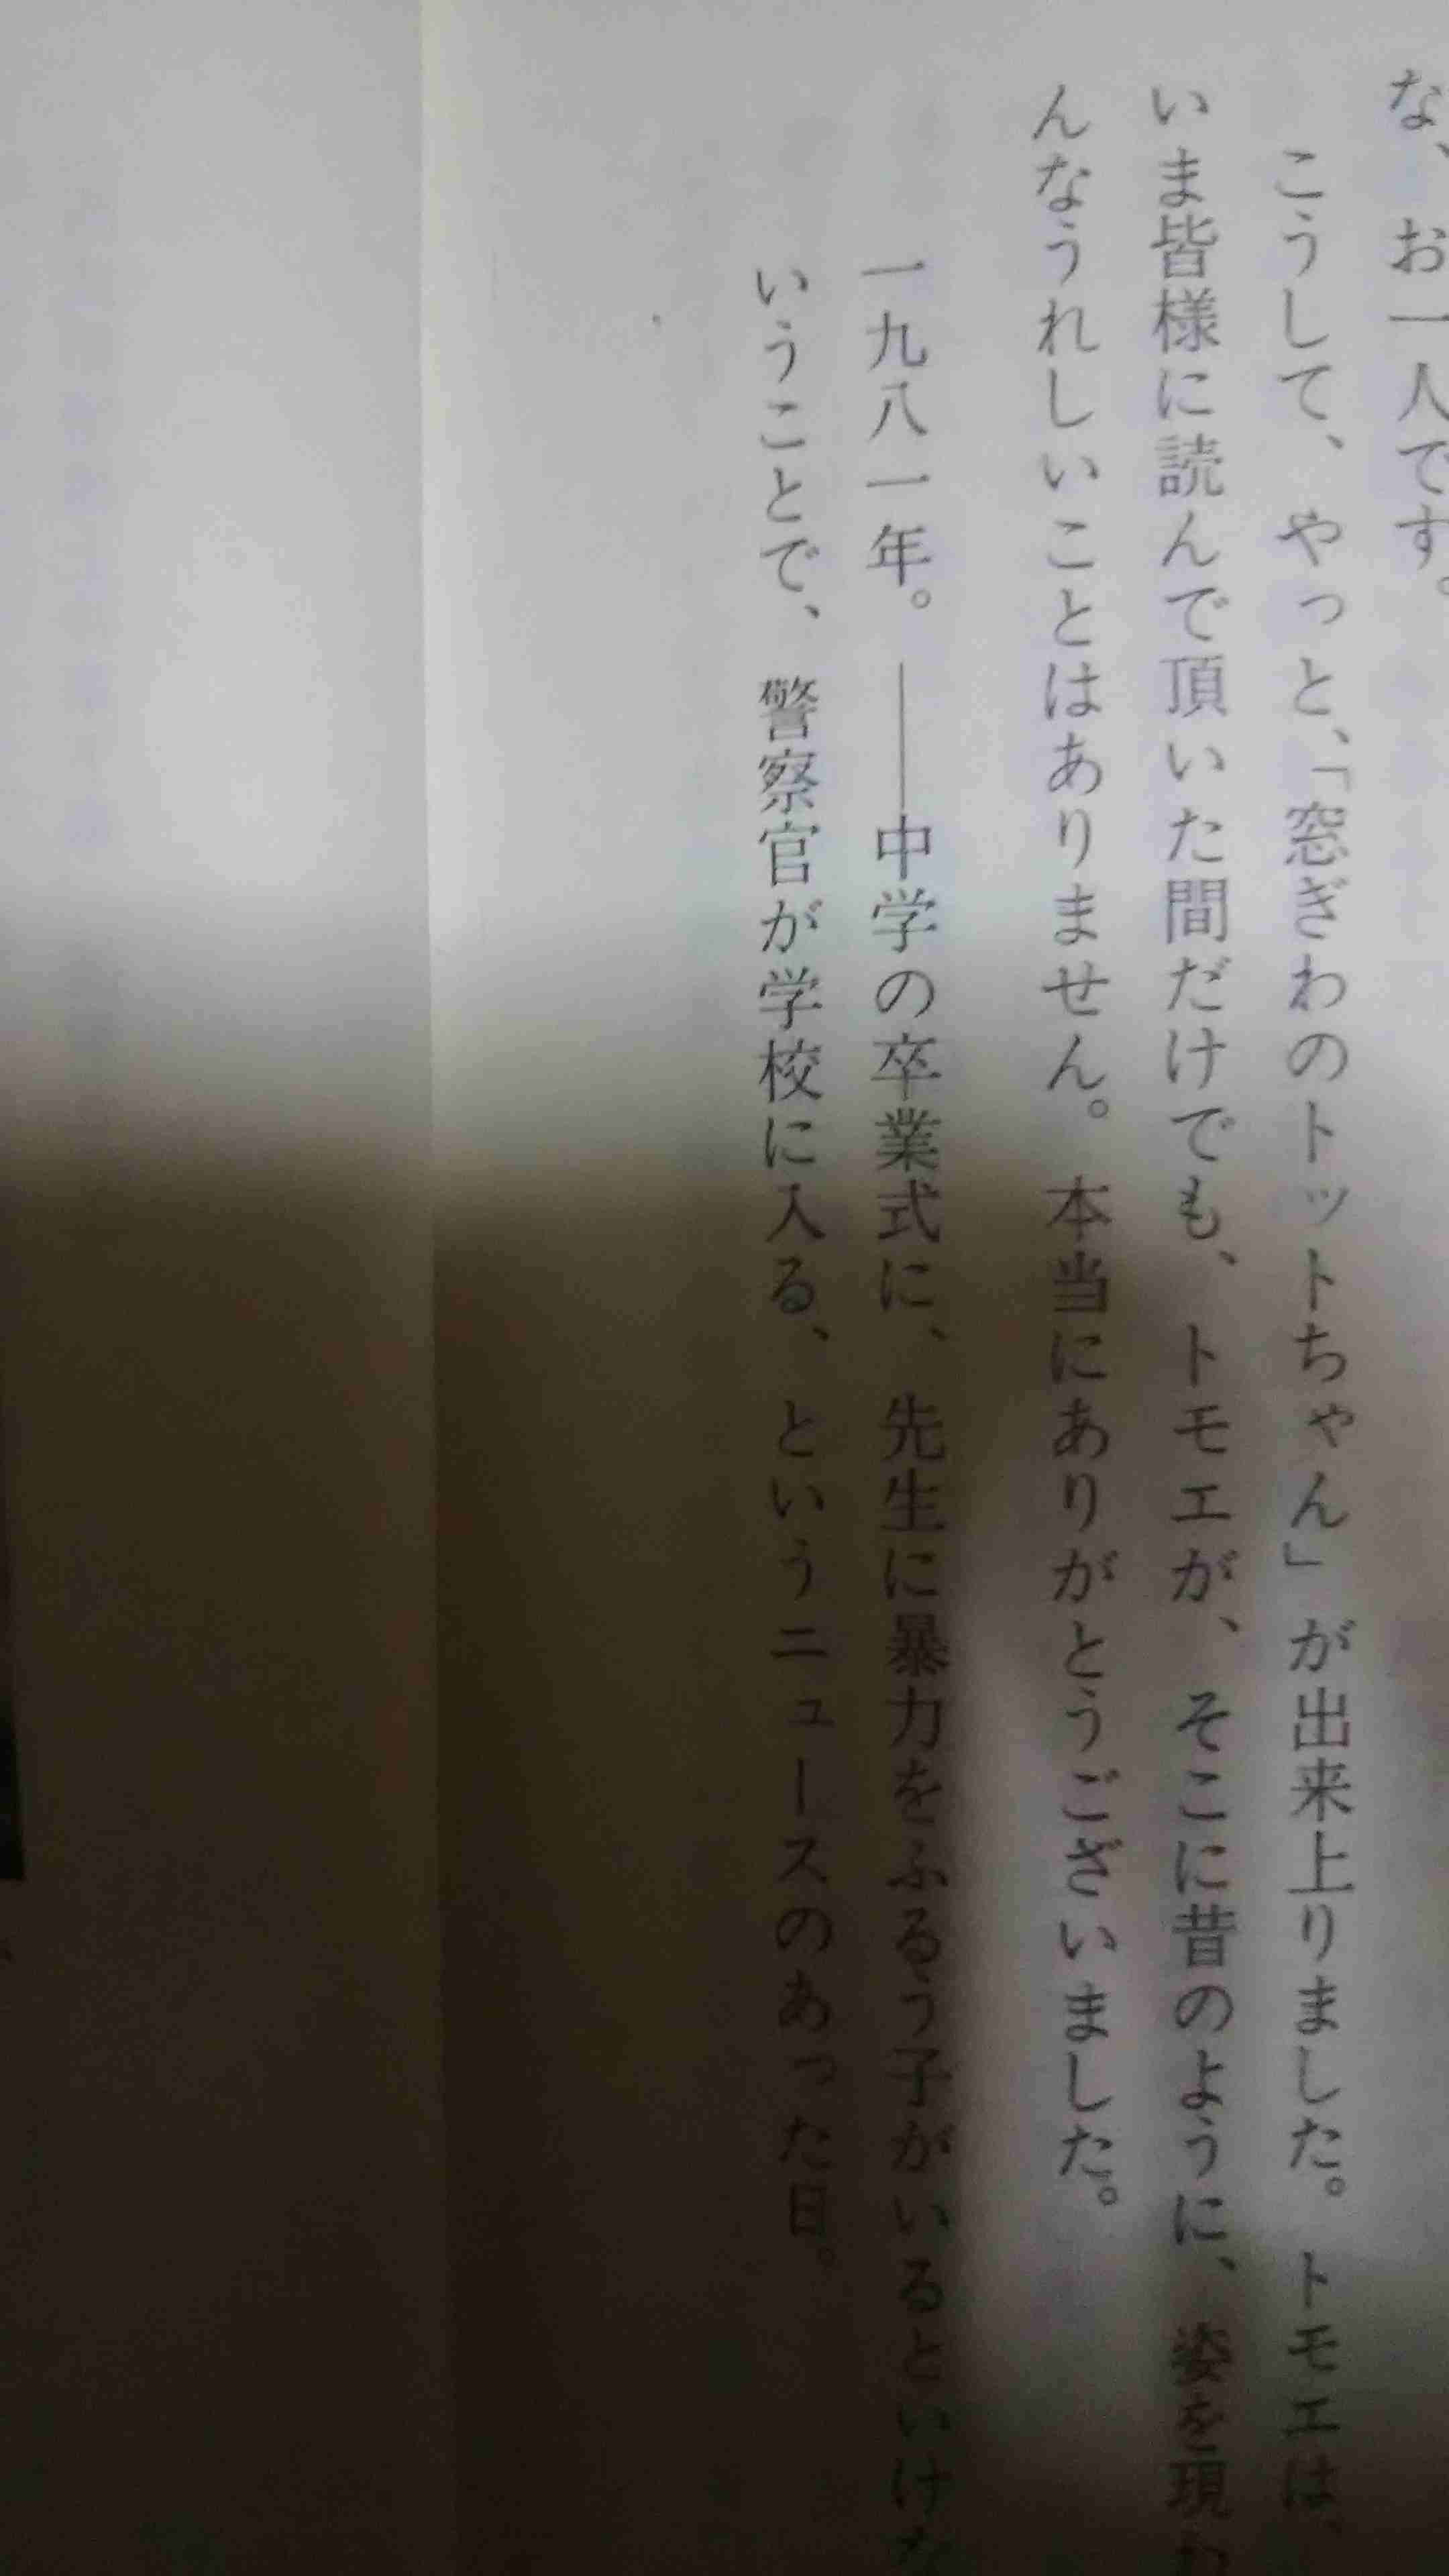 な、お一人です。
こうして、やっと、「窓ぎわのトットちゃん」が出来上りました。トモエは、
いま皆様に読んで頂いた間だけでも、トモエが、そこに昔のように、姿を現わ
んなうれしいことはありません。本当にありがとうございました。
一九八一年。――中学の卒業式に、先生に暴力をふるう子がいるといけな
いうことで、警察官が学校に入る、というニュースのあった日。